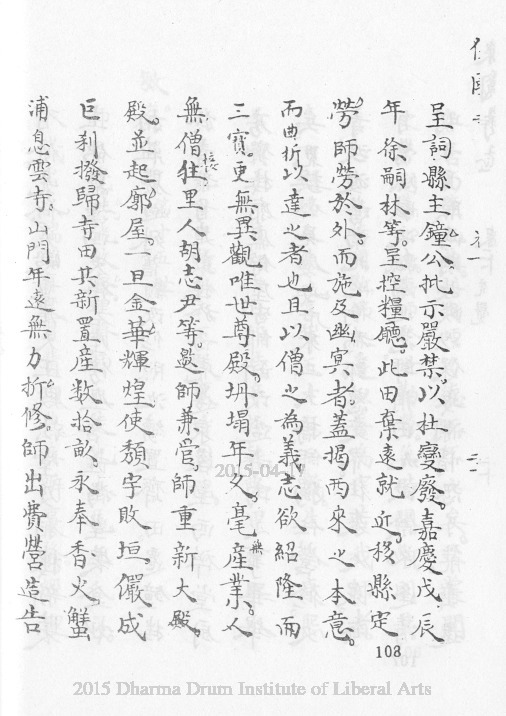 呈詞縣主鐘公批示嚴禁。以杜變廢。嘉慶戊辰
年徐嗣林等。呈控糧廳。此田棄遠就近。移縣定
勞師勞於外。而施及幽冥者。蓋揭西來之本意。
而曲折以達之者也且以僧之為義志欲紹隆而
三寶。更無異觀唯世尊殿。坍塌年久毫無產業。又
無僧接住。里人胡志尹等。邀師兼管師重新大殿。
殿。並起廓屋。一旦金華輝煌使頹宇敗垣。儼成
巨刹撥歸寺田其新置產数拾畝。永奉香火。蟹
浦息雲寺。山門年遠無力折修。師出費營造告
103
2015-04-17
2015 Dharma Drum Institute of Liberal Arts